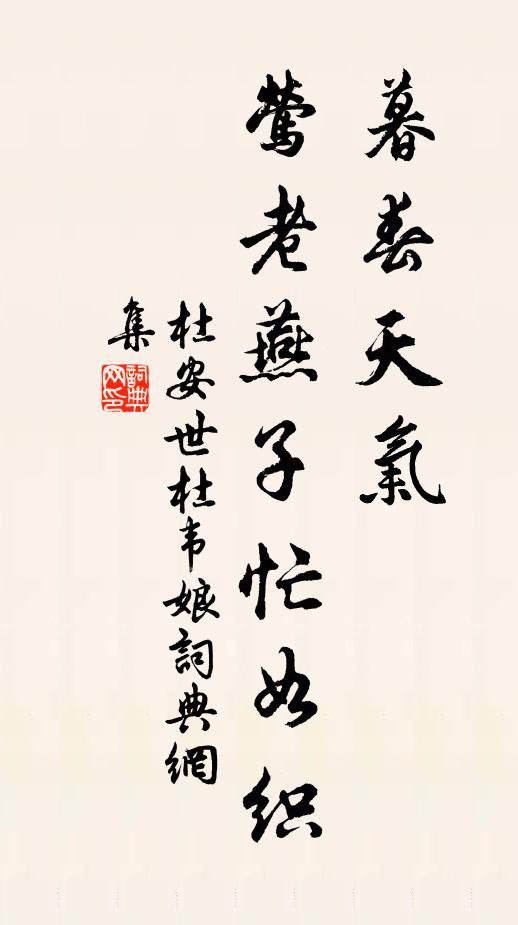 暮春天氣
鶯老燕子忙如织
杜安世杜韦娘詞典網
集
詞典网印